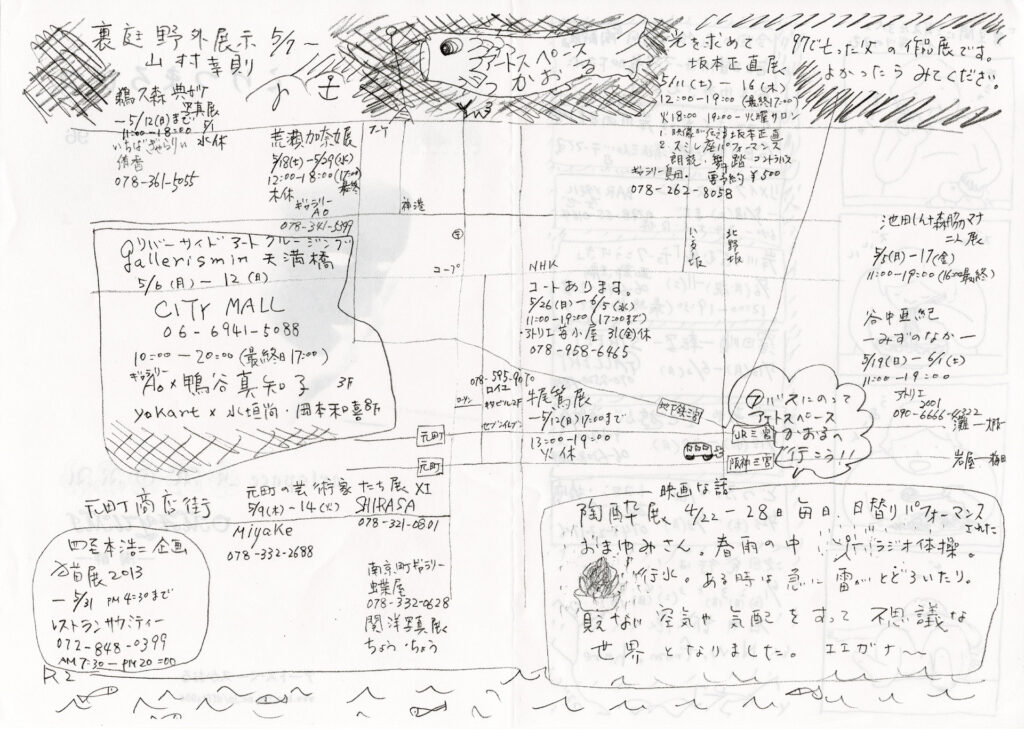 裏庭 野外展示 5/7〜
山村幸則
アートスペース
かおる
光を求めて
坂本正直展
5/11(土) 16(木)
12:00-19:00(最終17:00)
火18:00 19:00-火曜サロン
1. 映像が伝える坂本正直
2. スミレ座パフォーマンス
朗読・舞踏・コントラバス
ギャラリー島田。要予約 ¥500
078-262-8058
97で亡った父の作品展です。
よかったらみてください。
写真展
-5/12(日)まで
11:00-18:00 水休
いちばぎゃらりぃ
侑香
078-361-5055
荒瀬加奈展
5/18(土)-5/29(水)
12:00-18:00(17:00)
最終
木休
ギャラリー
AO
078-341-5399
神港
コープ
北野坂
池田しん+森脇マナ
二人展
5/5(日)-17(金)
11:00-19:00(16:00最終)
リバーサイドアートクルージング
gallerismin 天満橋
5/6(月)-12(日)
CITY MALL
06-6941-5088
10:00-20:00(最終日17:00)
ギャラリー
Ao×鴨谷真知子 3F
yokart×水垣尚・岡本和喜 8F
NHK
コートあります。
5/26(日)-6/5(水)
11:00-19:00(17:00まで)
アトリエ苺小屋 31(金)休
078-958-6465
谷中直紀
-みずのなか-
5/19(日)-6/1(土)
11:00-19:00
アトリエ
2001
090-6666-4322
灘-大阪
岩屋-梅田
078-595-9070
ロイエ
ローソン
セブンイレブン
牛尾篤展
-5/12(日)17:00まで
13:00-19:00
火休
地下鉄三宮
JR三宮
阪神三宮
⑦バスにのって
アートスペース
かおるへ
行こう!!
元町
元町
元町商店街
元町の芸術家たち展 XI
5/9(木)-14(火) SHIRASA
078-321-0801
Miyake
078-332-2688
四至本浩二企画
百首展2013
-5/31 PM4:30まで
レストランサウシティー
072-848-0399
AM7:30-PM20:00
南京町ギャラリー
蝶屋
078-332-0628
関洋写真展
ちょう・ちょう
映画な話
陶酔展 4/22-28日毎日、日替りパフォーマンス
された
おまゆみさん。春雨の中 ラジオ体操。
行水。ある時は急に雷がとどろいたり。
見えない空気や気配をすって不思議な
世界となりました。エエガナ〜
R2